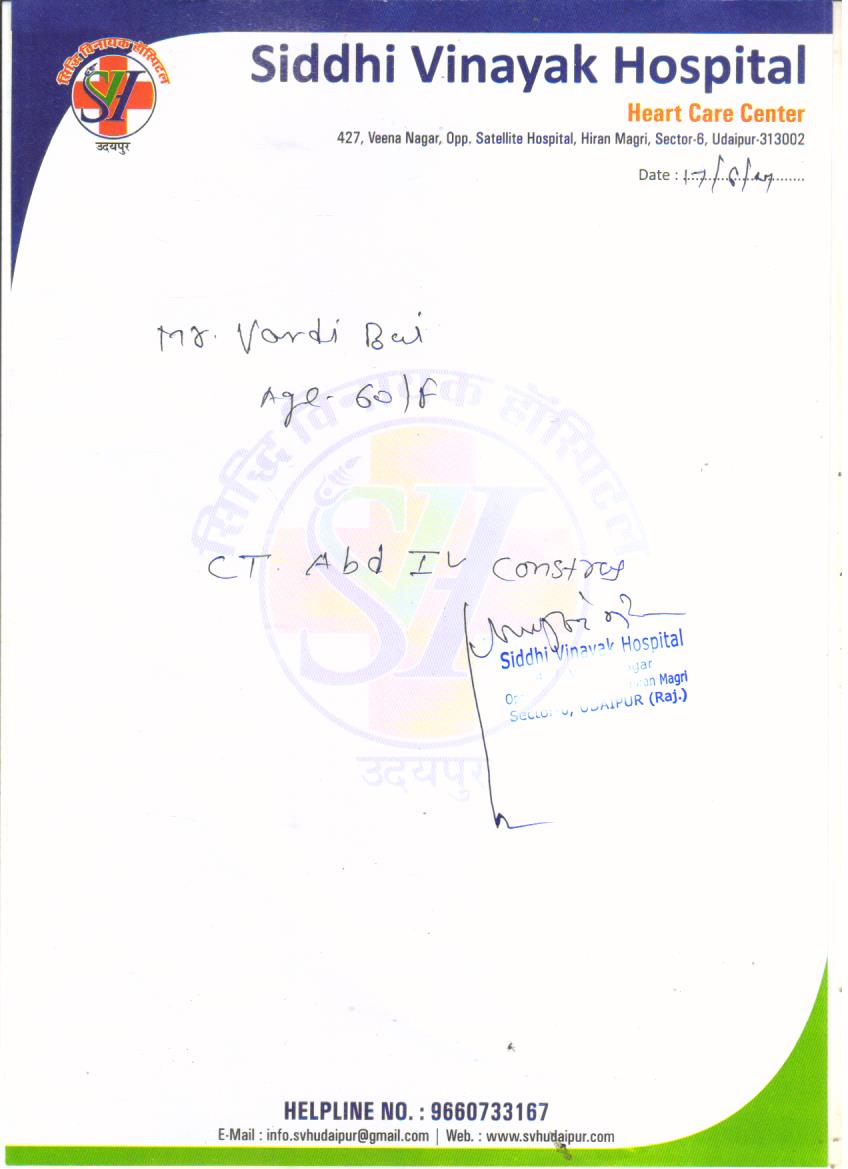 सिद्धि विनायक हॉस्पिटल
SVH
उदयपुर
Siddhi Vinayak Hospital
Heart Care Center
427, Veena Nagar, Opp. Satellite Hospital, Hiran Magri, Sector-6, Udaipur-313002
Date : 17/6/
Mr. Vardi Bai
Age- 60/F
सिद्धि विनायक हॉस्पिटल
SVH
CT. Abd IV Contrast
Siddhi Vinayak Hospital
Hiran Magri
Sector-6, UDAIPUR (Raj.)
उदयपुर
HELPLINE NO. : 9660733167
E-Mail : info.svhudaipur@gmail.com | Web. : www.svhudaipur.com